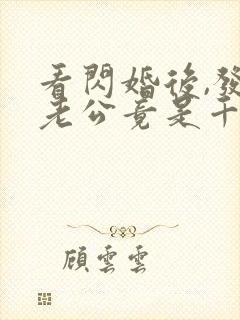 看閃婚後,發
老公竟是千
顧雲雲